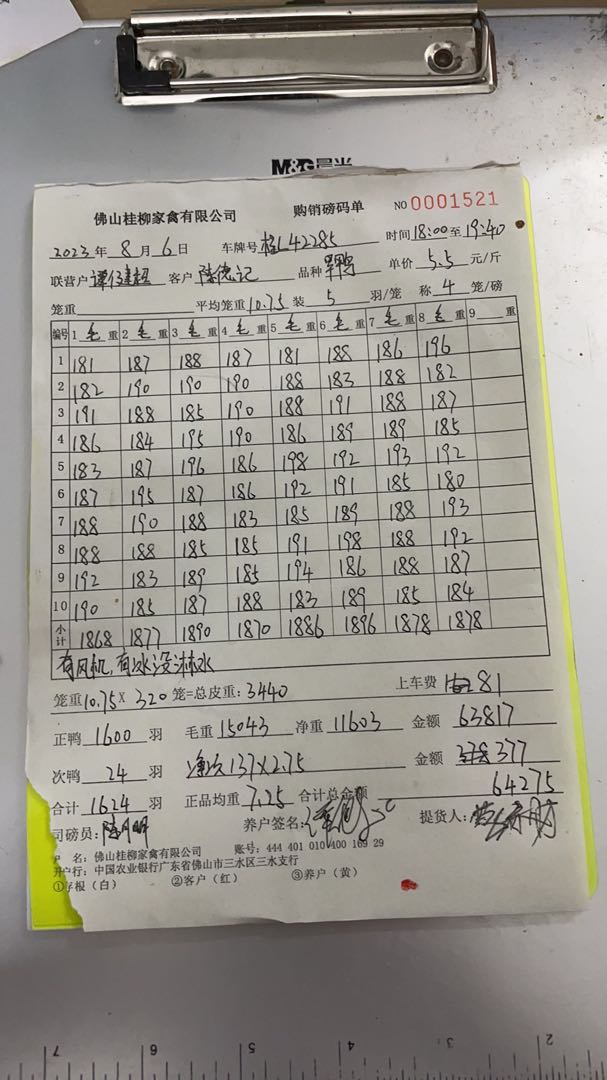 M&G晨光
佛山桂柳家禽有限公司 购销磅码单 NO 0001521
2023年 8月 6日 车牌号 桂L42285 时间 18:00至 19:40
联营户 客户 陈德记 品种 单价 5.5 元/斤
笼重 平均笼重 10.75 装 5 羽/笼 称 4 笼/磅
编号 1 毛 重 2 毛 重 3 毛 重 4 毛 重 5 毛 重 6 毛 重 7 毛 重 8 毛 重 9 重
1 181 187 188 187 181 188 186 196
2 182 190 190 190 188 183 188 182
3 191 188 185 190 188 191 188 187
4 186 184 195 190 186 189 189 185
5 183 187 196 186 198 192 193 192
6 187 195 187 186 192 191 185 180
7 188 190 188 183 185 189 188 193
8 188 188 185 185 191 198 188 192
9 192 183 189 185 194 186 188 187
10 190 185 187 188 183 189 185 184
小计 1868 1877 1890 1870 1886 1896 1878 1878
有风机,有冰没淋水
笼重 10.75 × 320 笼=总皮重: 3440 上车费 81
正鸭 1600 羽 毛重 15043 净重 11603 金额 63817
次鸭 24 羽 净次 137×2.75 金额 377
合计 1624 羽 正品均重 7.25 合计总金额 64275
司磅员: 养户签名: 提货人:
户 名: 佛山桂柳家禽有限公司 账号: 444 401 010 400 169 29
开户行: 中国农业银行广东省佛山市三水区三水支行
①存根(白) ②客户(红) ③养户(黄)
7 6 5 4 3 2